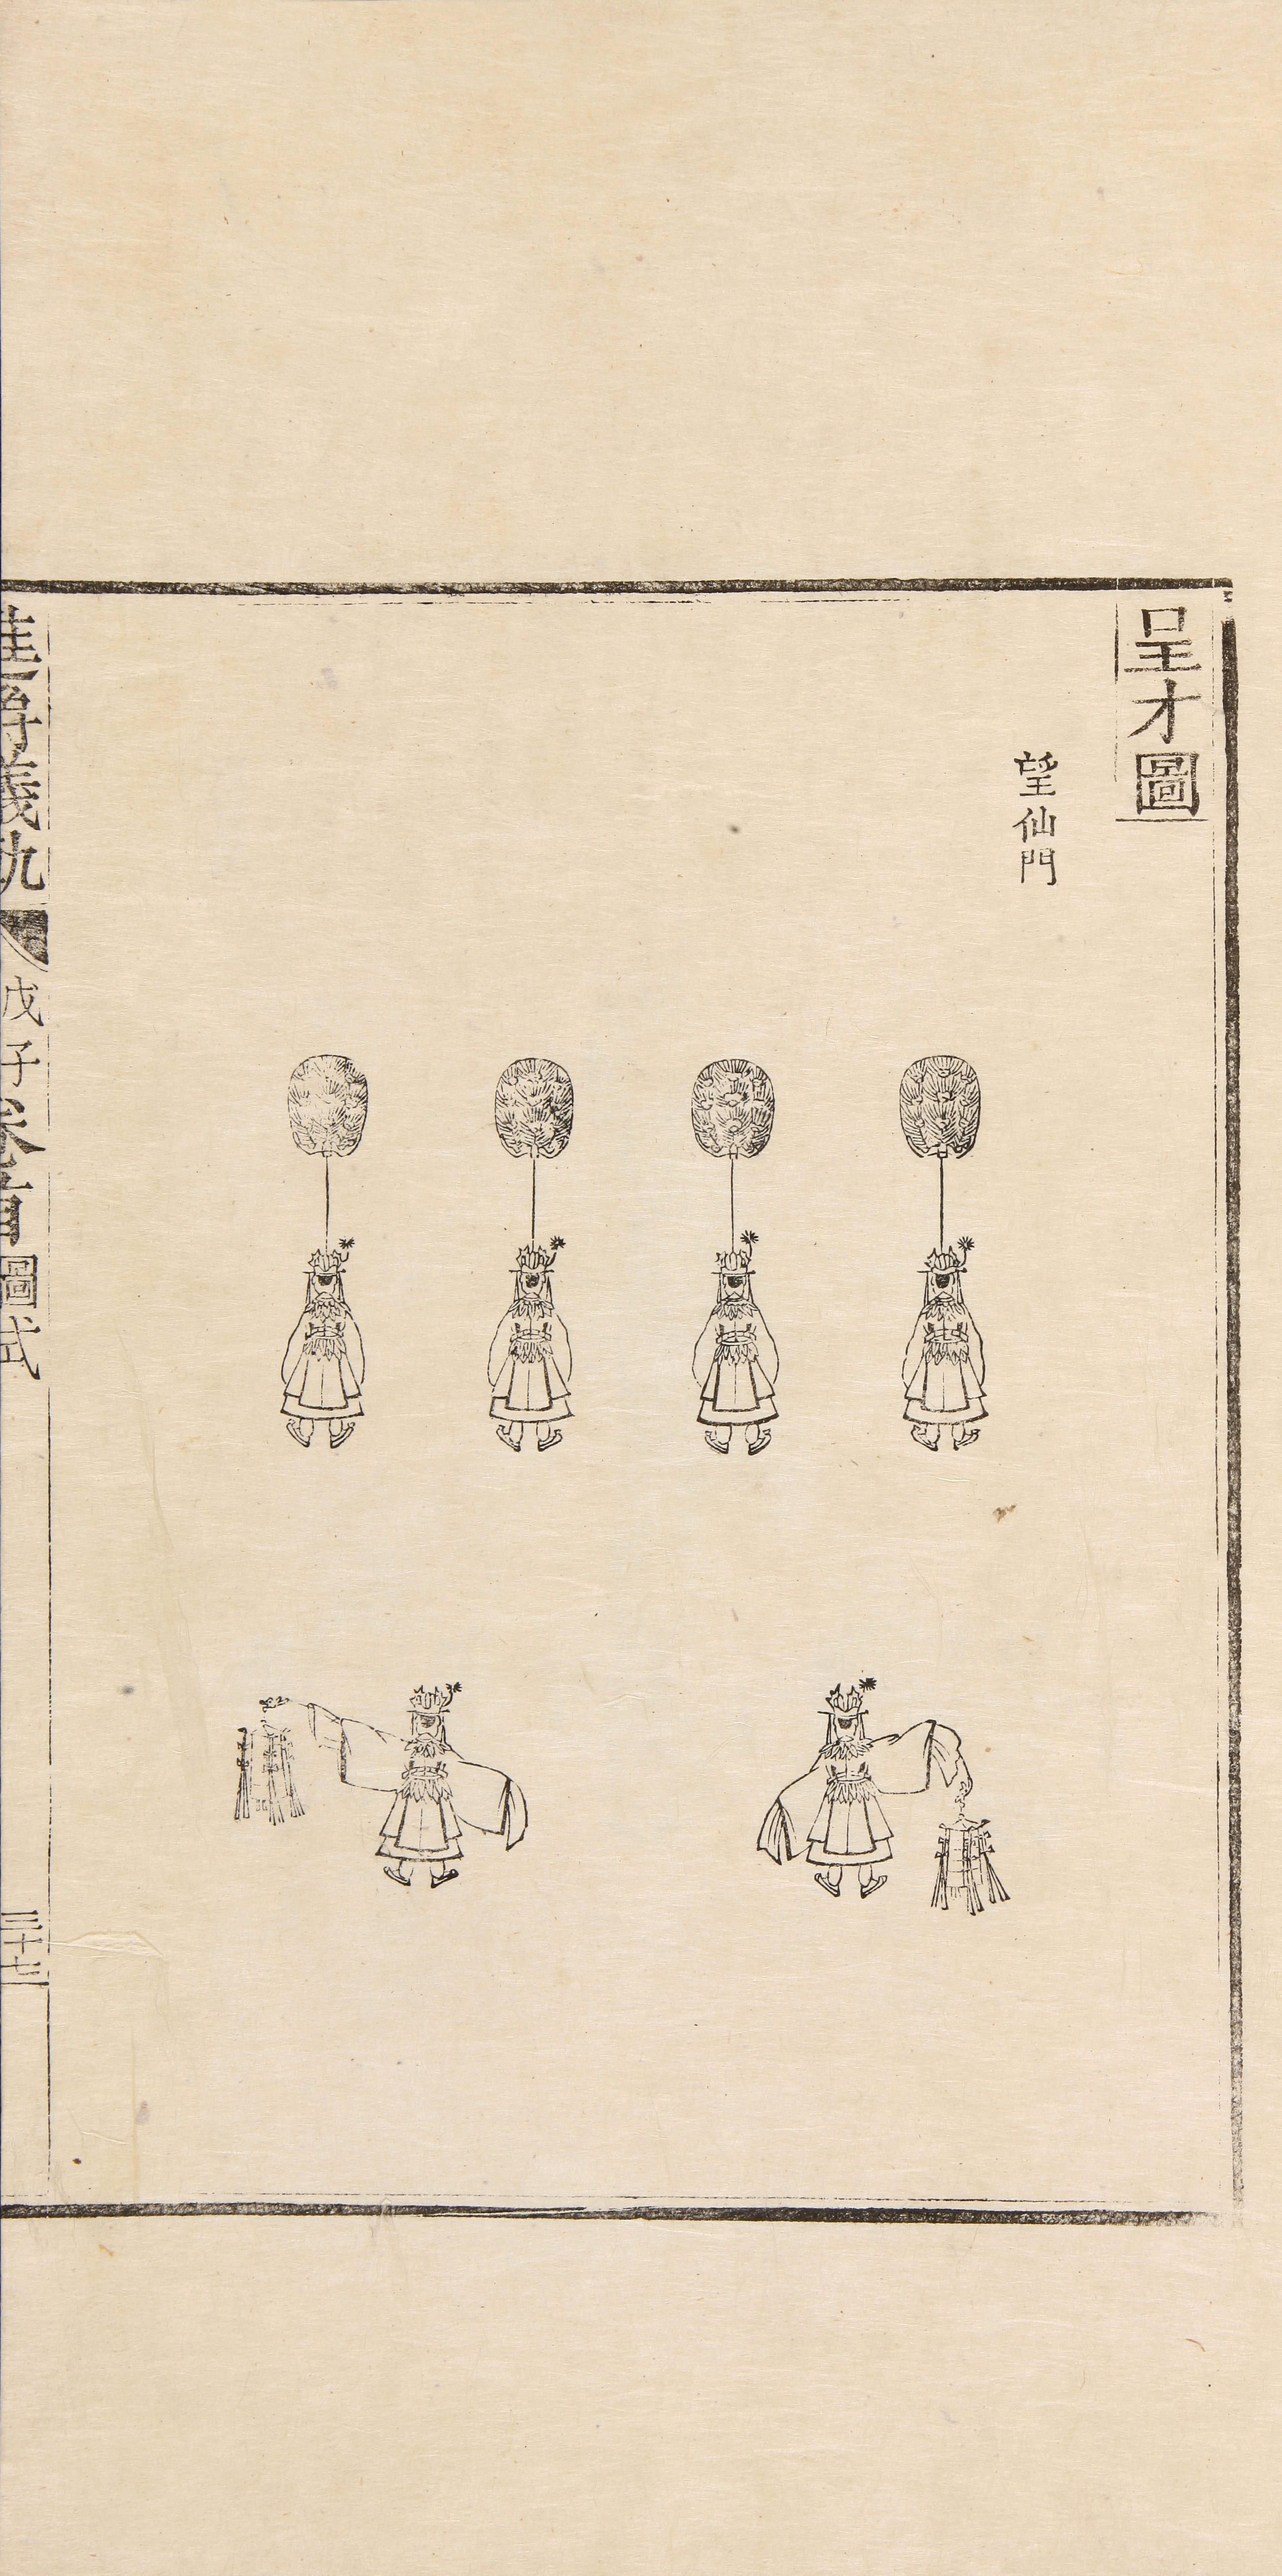 呈才圖
望仙門
進爵儀軌
戊子
卷首
圖式
三十七